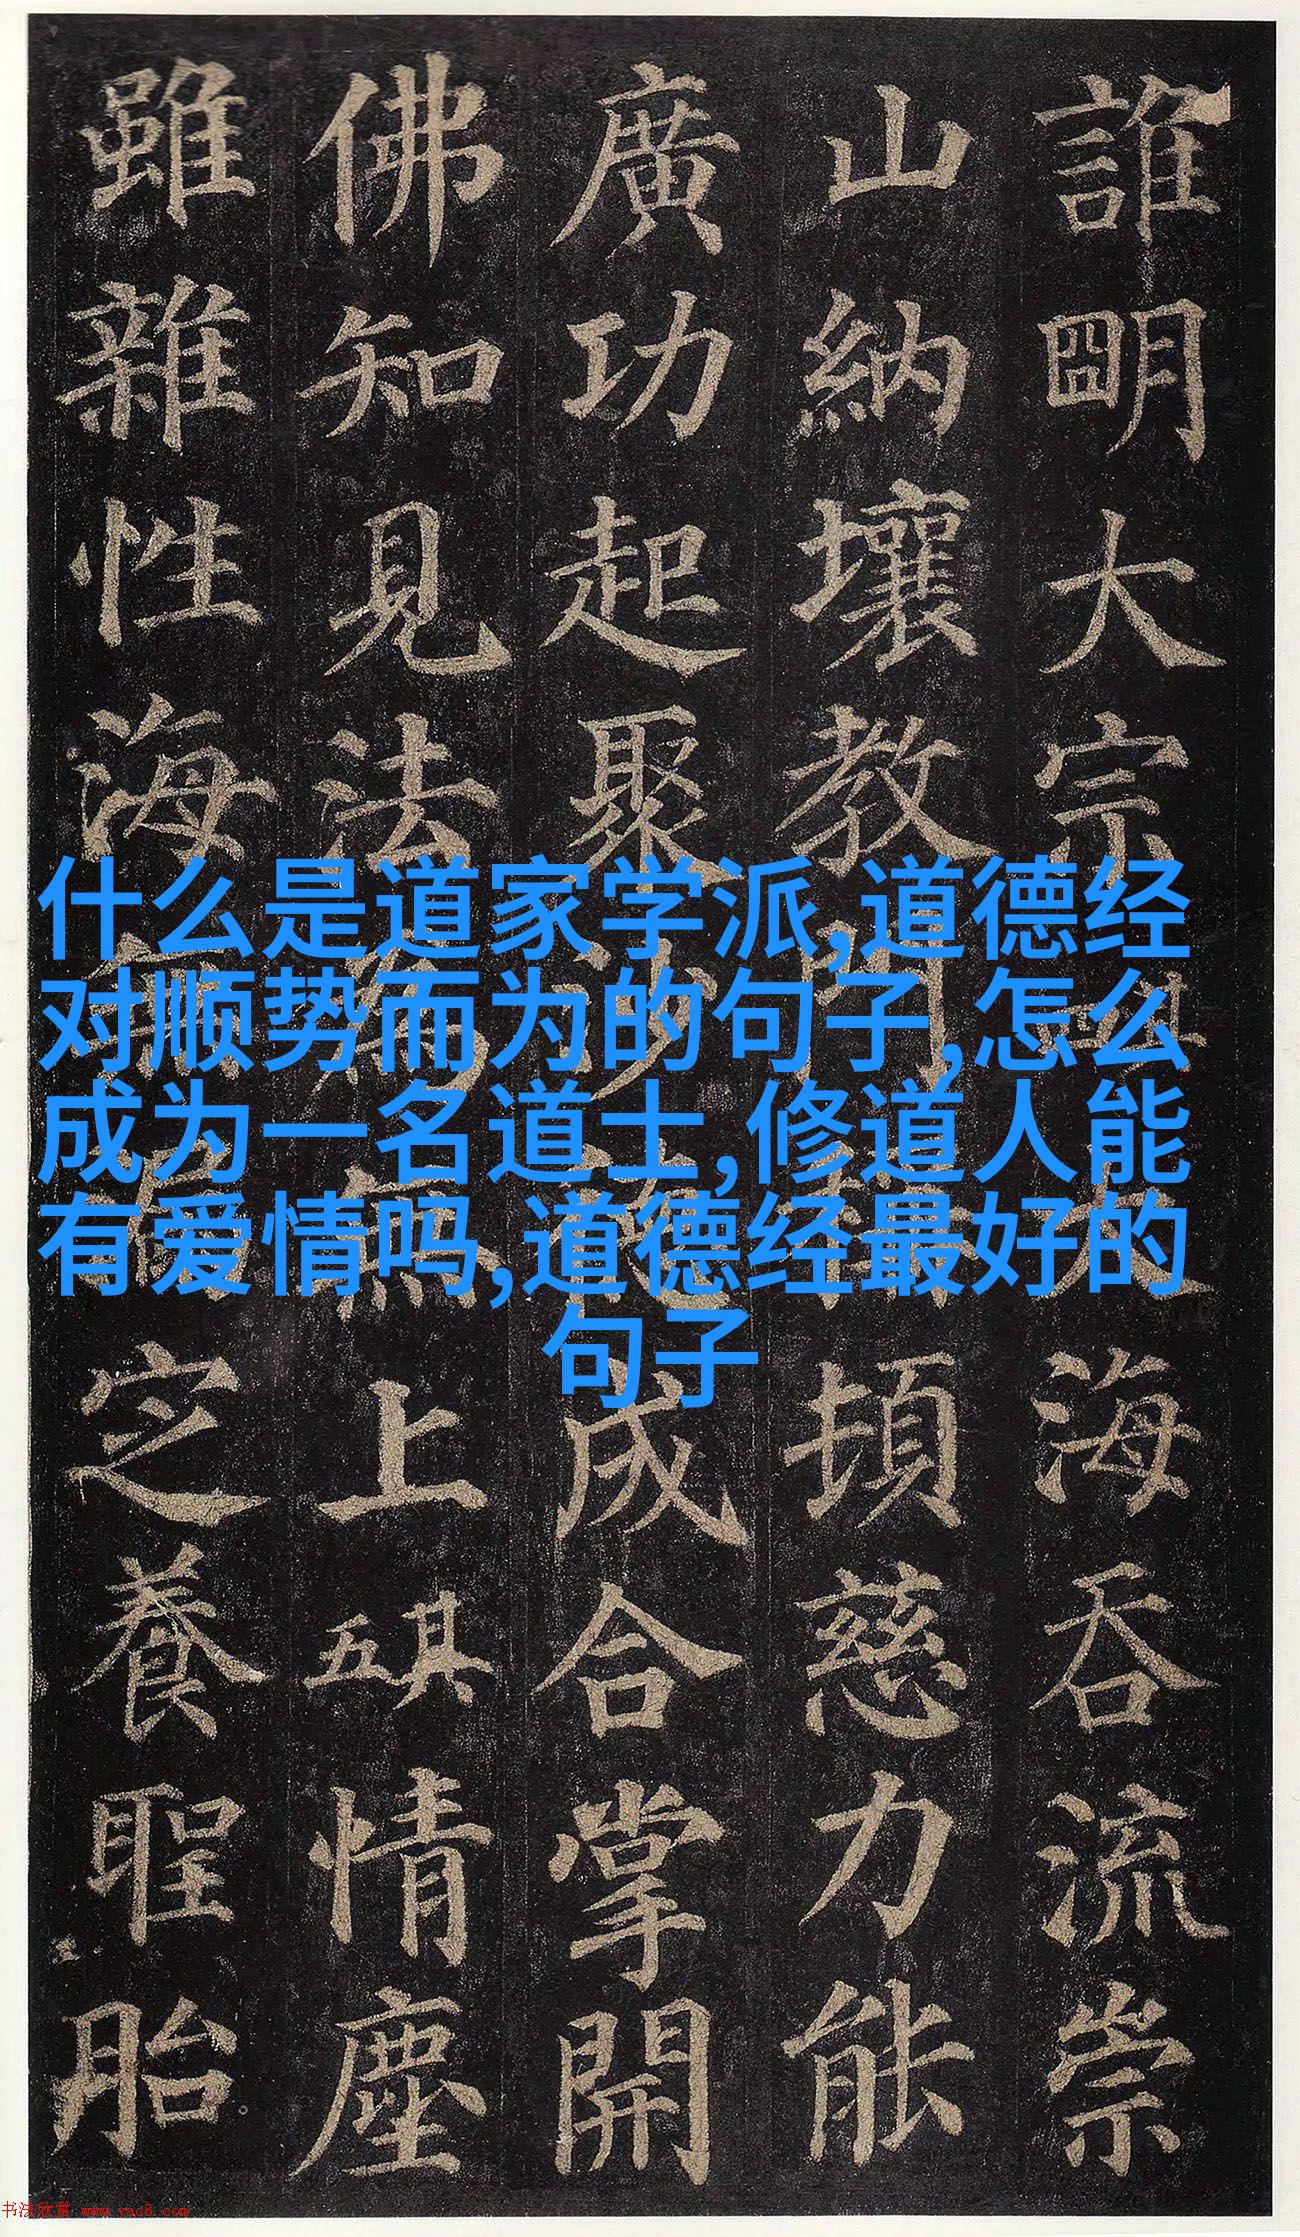 誰明大宗大海吞流崇
山納壤教門頓慈力能
廣功起聚沙成合掌開
佛知見法為無上其五情塵
雖雜性海無定養聖胎
什么是道家学派,道德经
对顺势而为的句子,怎么
成为一名道士,修道人能
有爱情吗,道德经最好的
句子
书法欣赏 www.yac8.com